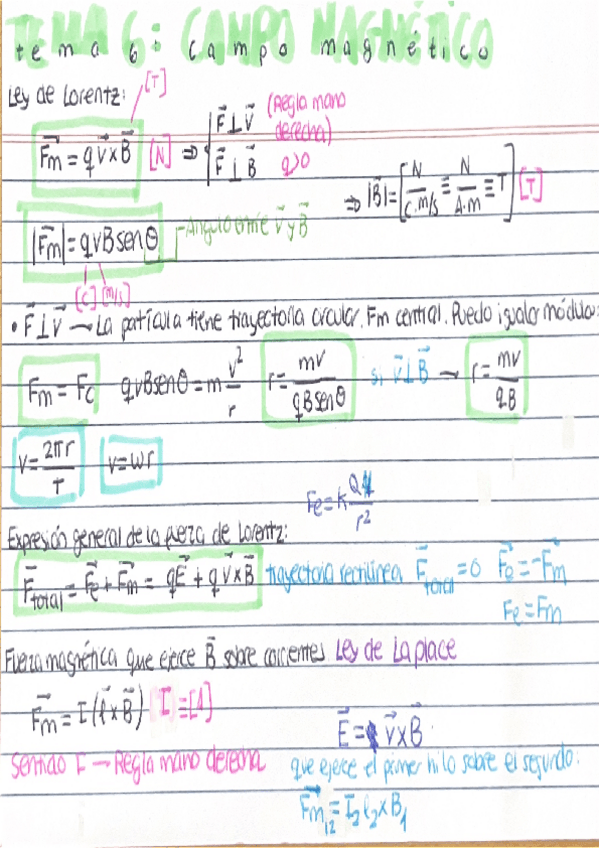 TEMA 6: CAMPO MAGNÉTICO
tema 6: campo magnético
Ley de Lorentz: [T]
F⃗m = q v⃗ x B⃗ [N] ⇒ { F⃗ ⊥ V⃗ (Regla mano derecha)
F⃗ ⊥ B⃗ q>0
⇒ |B⃗| = [N / C·m/s ≡ N / A·m ≡ T] [T]
|F⃗m| = qvB sen θ Angulo entre v⃗ y B⃗
[C] [m/s]
• F⃗ ⊥ V⃗ → La partícula tiene trayectoria circular. Fm central. Puedo igualar módulos:
Fm = Fc qvBsenθ = m v²/r r = mv/qBsenθ si v⃗ ⊥ B⃗ → r = mv/qB
v = 2πr/T v = wr
Fe = K Qq/r²
Expresión general de la fuerza de Lorentz:
F⃗total = F⃗e + F⃗m = qE⃗ + q v⃗ x B⃗ trayectoria rectilínea F⃗total = 0 F⃗e = -F⃗m
Fe = Fm
Fuerza magnética que ejerce B⃗ sobre corrientes Ley de Laplace
F⃗m = I (l⃗ x B⃗) I = [A]
E⃗ = v⃗ x B⃗
Sentido F → Regla mano derecha que ejerce el primer hilo sobre el segundo:
F⃗m₁₂ = I₂ l₂ x B₁